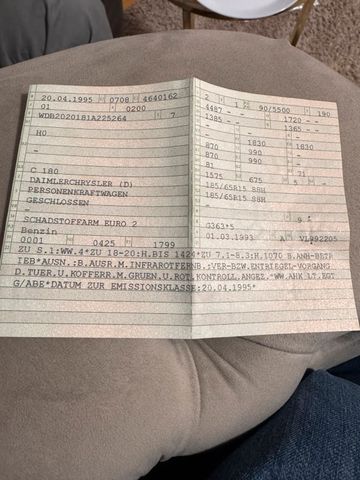 20.04.1995 0708 4640162
01 0200
WDB2020181A225264 7
H0
-
C 180
DAIMLERCHRYSLER (D)
PERSONENKRAFTWAGEN
GESCHLOSSEN
-
SCHADSTOFFARM EURO 2
Benzin
0001 0425 1799
2 1 90/5500 190
4487 - - 1720 - -
1385 - - 1365 - -
- 1830 1830
870 990 -
870 990 -
81 71
1575 675 5
185/65R15 88H
185/65R15 88H
-
G363*5 9.4
01.03.1993 A
ZU S.1:WW.4*ZU 18-20:H.BIS 1424*ZU 7.1-8.3:H.1070 B.ANH-BETR
IEB*AUSN.:B.AUSR.M.INFRAROTFERNB.:VER-BZW.ENTRIEGEL-VORGANG
D.TUER.U.KOFFERR.M.GRUEN.U.ROT.KONTROLL.ANGEZ.*WW.AHK LT.EGT
G/ABE*DATUM ZUR EMISSIONSKLASSE:20.04.1995*